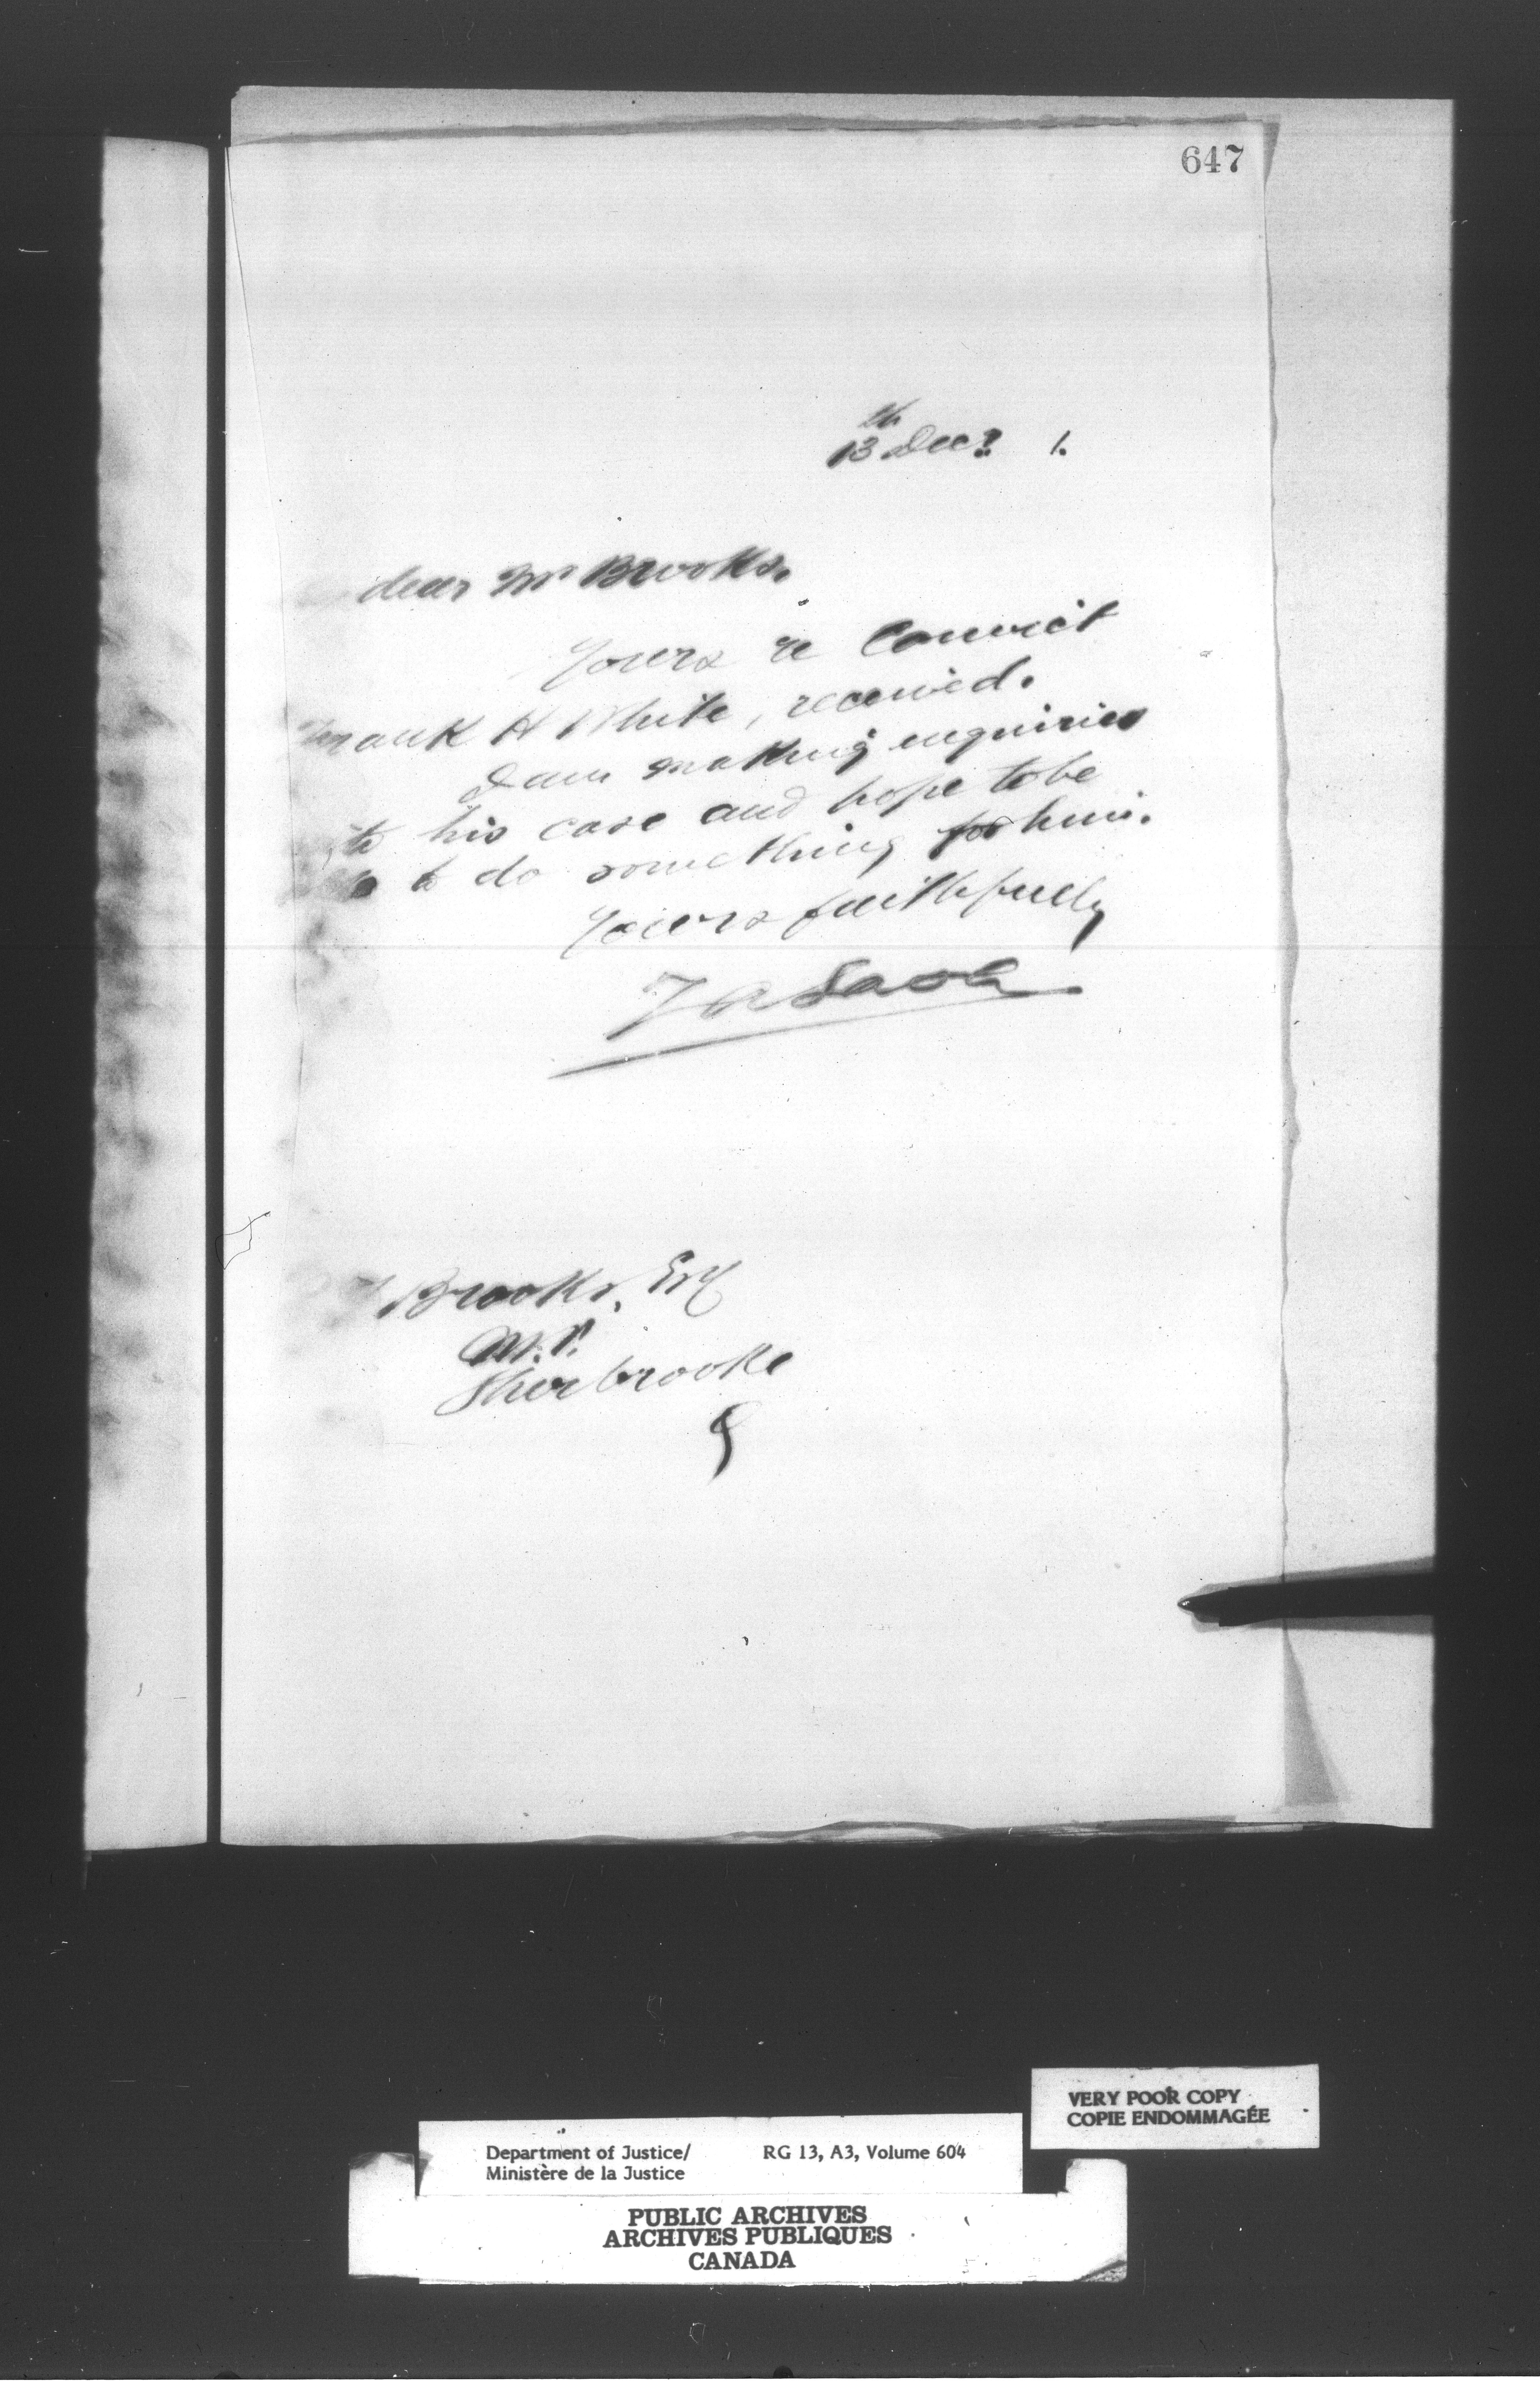 647
13th Decr 1.
dear Mr Brooks.
Yours re Convict
Frank H White, received.
I am making enquiries
to his case and hope to be
to do something for him.
Yours faithfully
Brooks, Esq
M.P.
Sherbrooke
VERY POOR COPY
COPIE ENDOMMAGÉE
Department of Justice/ RG 13, A3, Volume 604
Ministère de la Justice
PUBLIC ARCHIVES
ARCHIVES PUBLIQUES
CANADA